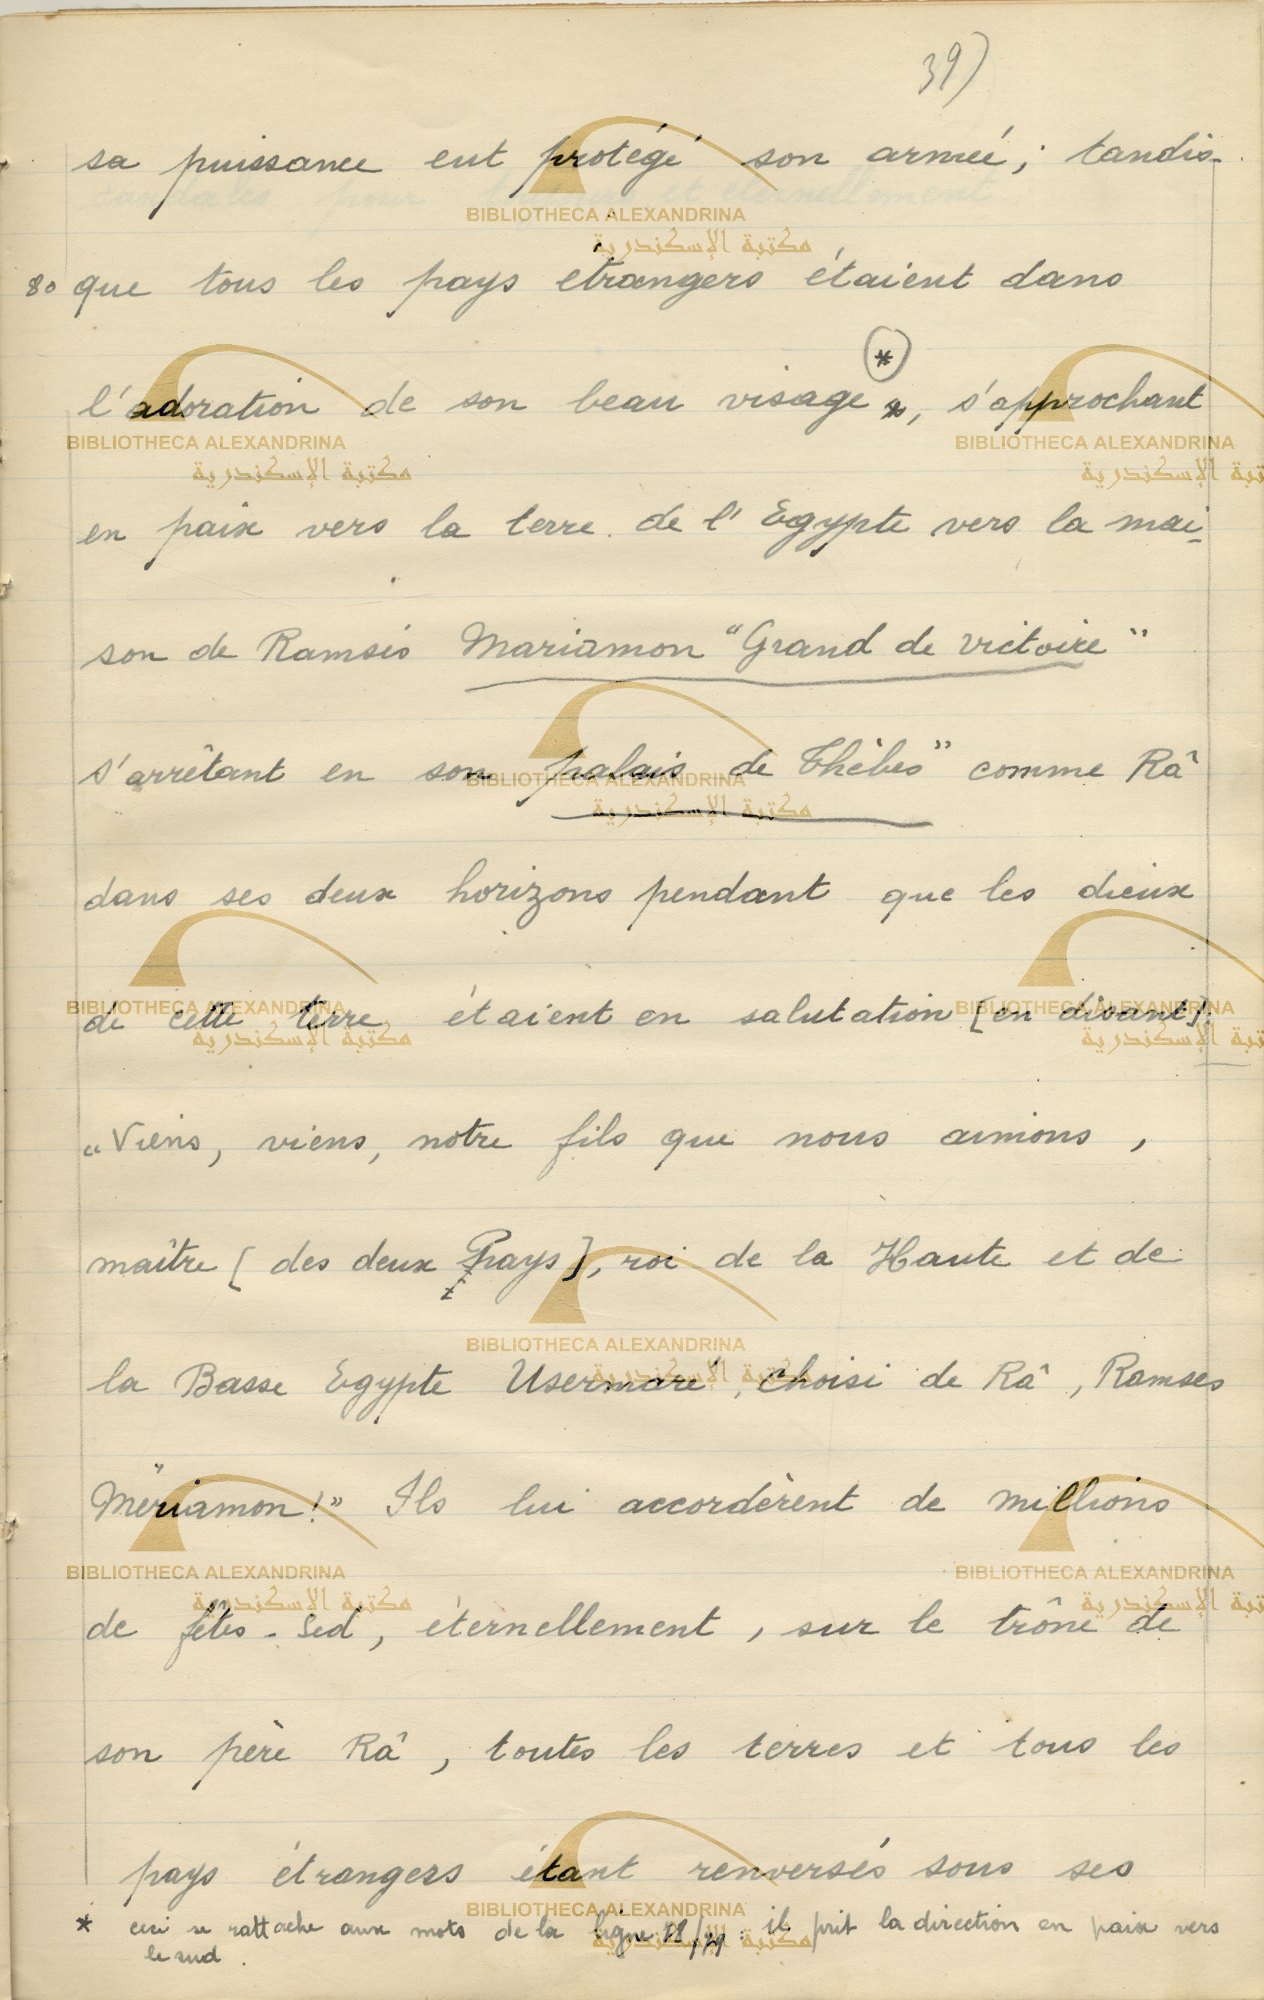 39)
sa puissance eut protégé son armée; tandis-
80 que tous les pays étrangers étaient dans
l'adoration de son beau visage *, s'approchant
en paix vers la terre de l'Egypte vers la mai-
son de Ramsès Mariamon "Grand de victoire"
s'arrêtant en son palais de Thèbes" comme Râ
dans ses deux horizons pendant que les dieux
de cette terre étaient en salutation [en disant]:
"Viens, viens, notre fils que nous aimons,
maître [des deux Pays], roi de la Haute et de
la Basse Egypte Usermaré, choisi de Râ, Ramses
Mériamon!" Ils lui accordèrent de millions
de fêtes-Sed, éternellement, sur le trône de
son père Râ, toutes les terres et tous les
pays étrangers étant renversés sous ses
* ceci se rattache aux mots de la ligne 78/79: il prit la direction en paix vers
le sud.
BIBLIOTHECA ALEXANDRINA
مكتبة الإسكندرية